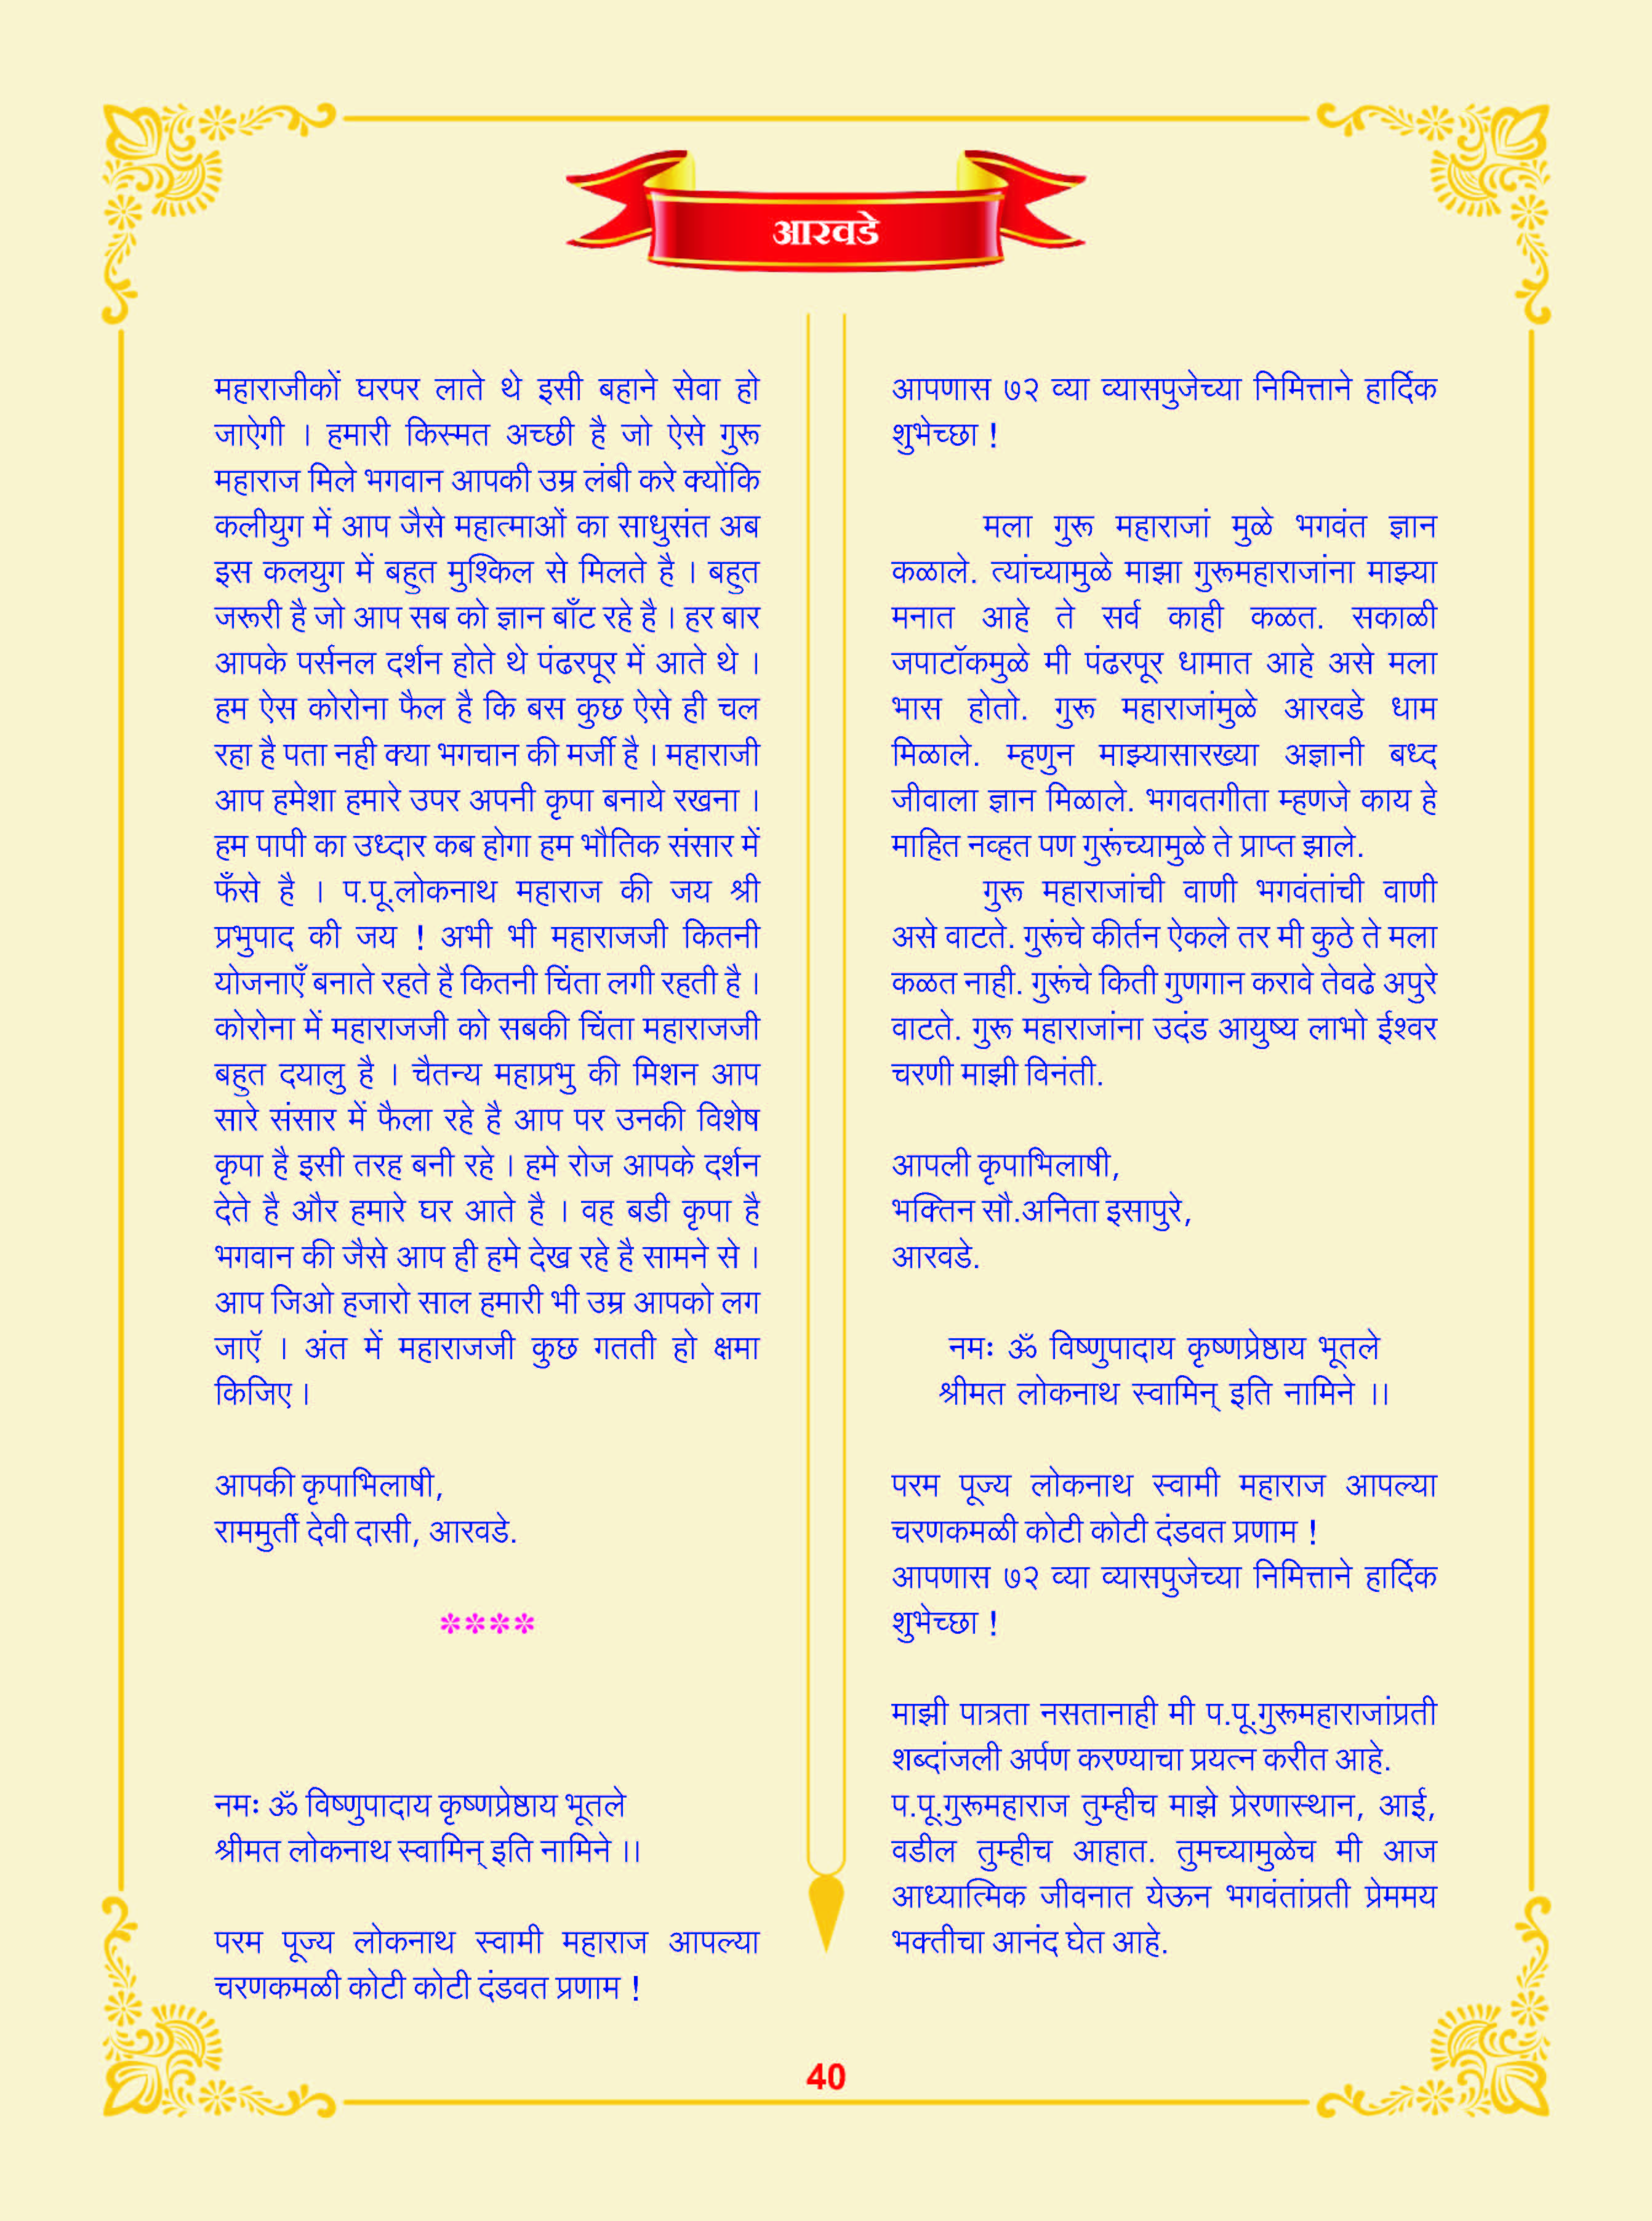 आरवडे
महाराजीकों घरपर लाते थे इसी बहाने सेवा हो
जाऐगी । हमारी किस्मत अच्छी है जो ऐसे गुरू
महाराज मिले भगवान आपकी उम्र लंबी करे क्योंकि
कलीयुग में आप जैसे महात्माओं का साधुसंत अब
इस कलयुग में बहुत मुश्किल से मिलते है । बहुत
जरूरी है जो आप सब को ज्ञान बाँट रहे है । हर बार
आपके पर्सनल दर्शन होते थे पंढरपूर में आते थे ।
हम ऐस कोरोना फैल है कि बस कुछ ऐसे ही चल
रहा है पता नही क्या भगचान की मर्जी है । महाराजी
आप हमेशा हमारे उपर अपनी कृपा बनाये रखना ।
हम पापी का उध्दार कब होगा हम भौतिक संसार में
फँसे है । प.पू.लोकनाथ महाराज की जय श्री
प्रभुपाद की जय ! अभी भी महाराजजी कितनी
योजनाएँ बनाते रहते है कितनी चिंता लगी रहती है ।
कोरोना में महाराजजी को सबकी चिंता महाराजजी
बहुत दयालु है । चैतन्य महाप्रभु की मिशन आप
सारे संसार में फैला रहे है आप पर उनकी विशेष
कृपा है इसी तरह बनी रहे । हमे रोज आपके दर्शन
देते है और हमारे घर आते है । वह बडी कृपा है
भगवान की जैसे आप ही हमे देख रहे है सामने से ।
आप जिओ हजारो साल हमारी भी उम्र आपको लग
जाएॅ । अंत में महाराजजी कुछ गतती हो क्षमा
किजिए ।
आपकी कृपाभिलाषी,
राममुर्ती देवी दासी, आरवडे.
****
नमः ॐ विष्णुपादाय कृष्णप्रेष्ठाय भूतले
श्रीमत लोकनाथ स्वामिन् इति नामिने ।।
परम पूज्य लोकनाथ स्वामी महाराज आपल्या
चरणकमळी कोटी कोटी दंडवत प्रणाम !
आपणास ७२ व्या व्यासपुजेच्या निमित्ताने हार्दिक
शुभेच्छा !
मला गुरू महाराजां मुळे भगवंत ज्ञान
कळाले. त्यांच्यामुळे माझा गुरूमहाराजांना माझ्या
मनात आहे ते सर्व काही कळत. सकाळी
जपाटॉकमुळे मी पंढरपूर धामात आहे असे मला
भास होतो. गुरू महाराजांमुळे आरवडे धाम
मिळाले. म्हणुन माझ्यासारख्या अज्ञानी बध्द
जीवाला ज्ञान मिळाले. भगवतगीता म्हणजे काय हे
माहित नव्हत पण गुरूंच्यामुळे ते प्राप्त झाले.
गुरू महाराजांची वाणी भगवंतांची वाणी
असे वाटते. गुरूंचे कीर्तन ऐकले तर मी कुठे ते मला
कळत नाही. गुरूंचे किती गुणगान करावे तेवढे अपुरे
वाटते. गुरू महाराजांना उदंड आयुष्य लाभो ईश्वर
चरणी माझी विनंती.
आपली कृपाभिलाषी,
भक्तिन सौ.अनिता इसापुरे,
आरवडे.
नमः ॐ विष्णुपादाय कृष्णप्रेष्ठाय भूतले
श्रीमत लोकनाथ स्वामिन् इति नामिने ।।
परम पूज्य लोकनाथ स्वामी महाराज आपल्या
चरणकमळी कोटी कोटी दंडवत प्रणाम !
आपणास ७२ व्या व्यासपुजेच्या निमित्ताने हार्दिक
शुभेच्छा !
माझी पात्रता नसतानाही मी प.पू.गुरूमहाराजांप्रती
शब्दांजली अर्पण करण्याचा प्रयत्न करीत आहे.
प.पू.गुरूमहाराज तुम्हीच माझे प्रेरणास्थान, आई,
वडील तुम्हीच आहात. तुमच्यामुळेच मी आज
आध्यात्मिक जीवनात येऊन भगवंतांप्रती प्रेममय
भक्तीचा आनंद घेत आहे.
40